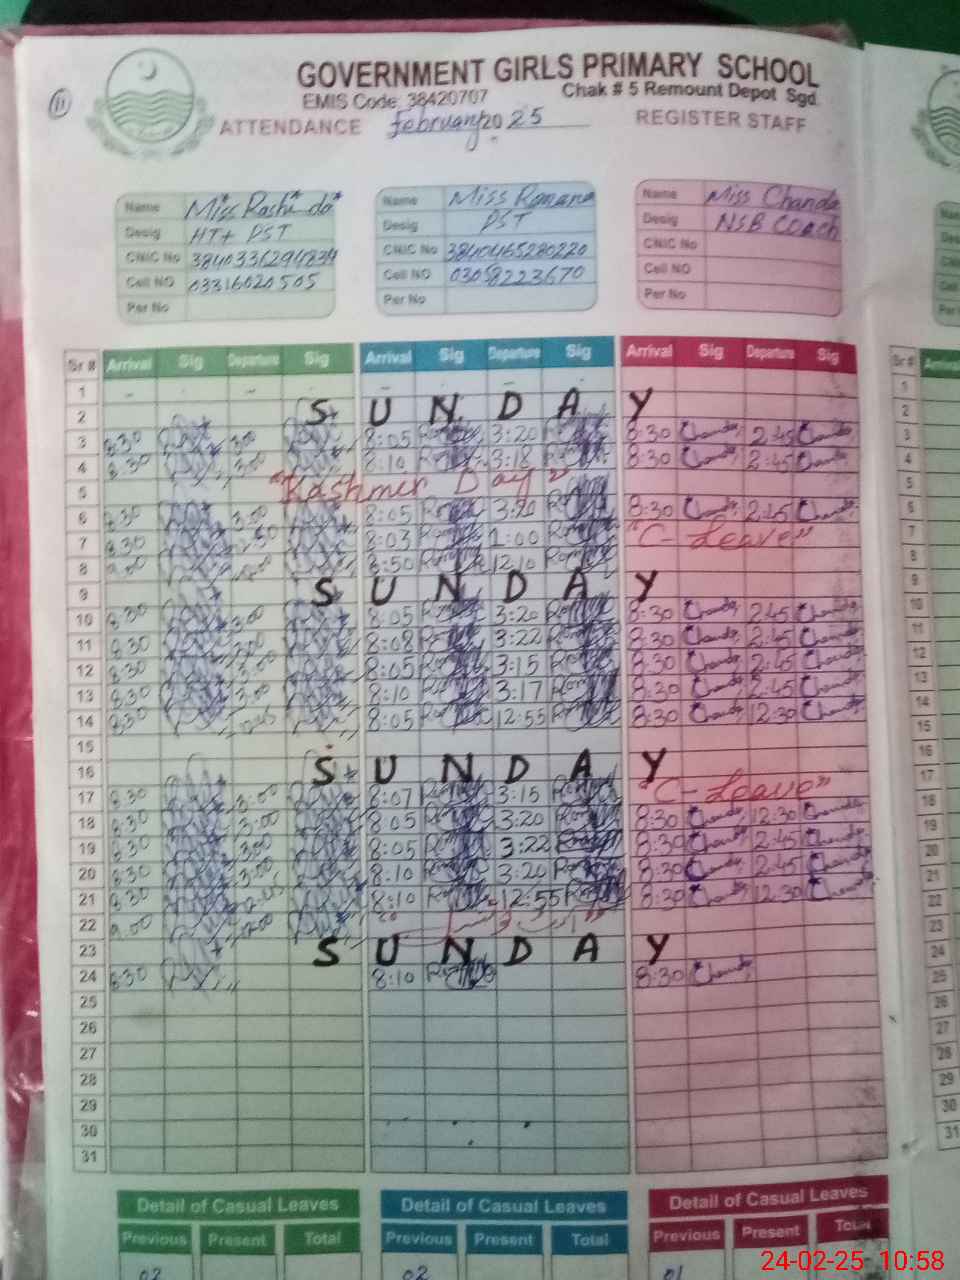 11
GOVERNMENT GIRLS PRIMARY SCHOOL
EMIS Code: 38420707 Chak # 5 Remount Depot Sgd.
ATTENDANCE February 2025 REGISTER STAFF
Name Miss Rashida Name Miss Romana Name Miss Chanda
Desig HT+ PST Desig PST Desig NSB Coach
CNIC No CNIC No 3840465280220 CNIC No
Cell NO 03316020505 Cell NO 03058223670 Cell NO
Per No Per No Per No
Sr # Arrival Sig Departure Sig Arrival Sig Departure Sig Arrival Sig Departure Sig Sr #
1 - - - - 1
2 S U N D A Y 2
3 8:30 3:00 8:05 3:20 8:30 Chanda 2:45 Chanda 3
4 8:30 3:00 8:10 3:18 8:30 Chanda 2:45 Chanda 4
5 "Kashmir Day" 5
6 8:30 3:00 8:05 3:20 8:30 Chanda 2:45 Chanda 6
7 8:30 8:03 1:00 "C-Leave" 7
8 9:00 8:50 12:10 8
9 S U N D A Y 9
10 8:30 3:00 8:05 3:20 8:30 Chanda 2:45 Chanda 10
11 8:30 3:00 8:08 3:22 8:30 Chanda 2:45 Chanda 11
12 8:30 3:00 8:05 3:15 8:30 Chanda 2:45 Chanda 12
13 8:30 3:00 8:10 3:17 8:30 Chanda 2:45 Chanda 13
14 8:30 8:05 12:55 8:30 Chanda 12:30 Chanda 14
15 15
16 S U N D A Y 16
17 8:30 3:00 8:07 3:15 "C-Leave" 17
18 8:30 3:00 8:05 3:20 8:30 Chanda 12:30 Chanda 18
19 8:30 3:00 8:05 3:22 8:30 Chanda 2:45 Chanda 19
20 8:30 3:00 8:10 3:20 8:30 Chanda 2:45 Chanda 20
21 8:30 8:10 12:55 8:30 Chanda 12:30 Chanda 21
22 9:00 22
23 S U N D A Y 23
24 8:30 8:10 8:30 Chanda 24
25 25
26 26
27 27
28 28
29 29
30 30
31 31
Detail of Casual Leaves Detail of Casual Leaves Detail of Casual Leaves
Previous Present Total Previous Present Total Previous Present Total
02 02 01
24-02-25 10:58